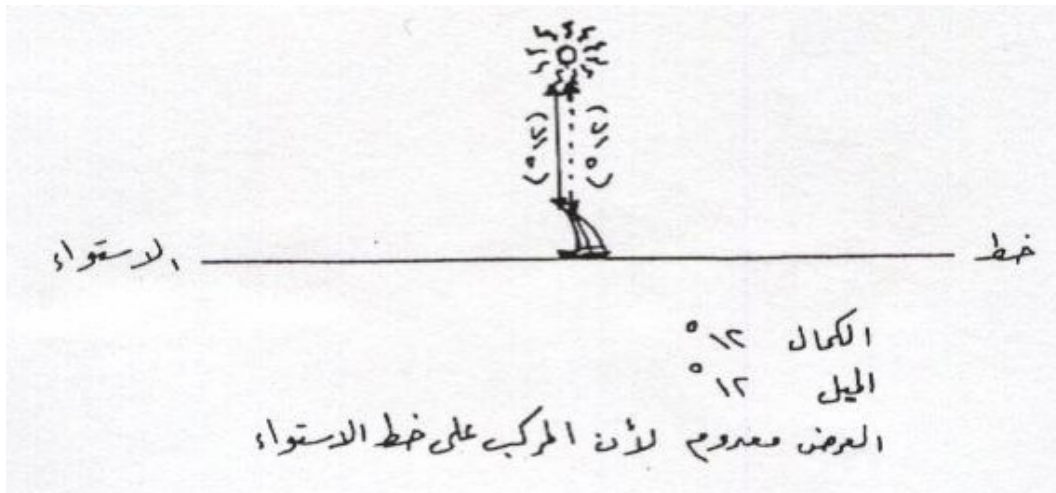 (١٢°) (١٢°)
خط الاستواء
الكمال ١٢°
الميل ١٢°
العرض معدوم لأن المركب على خط الاستواء